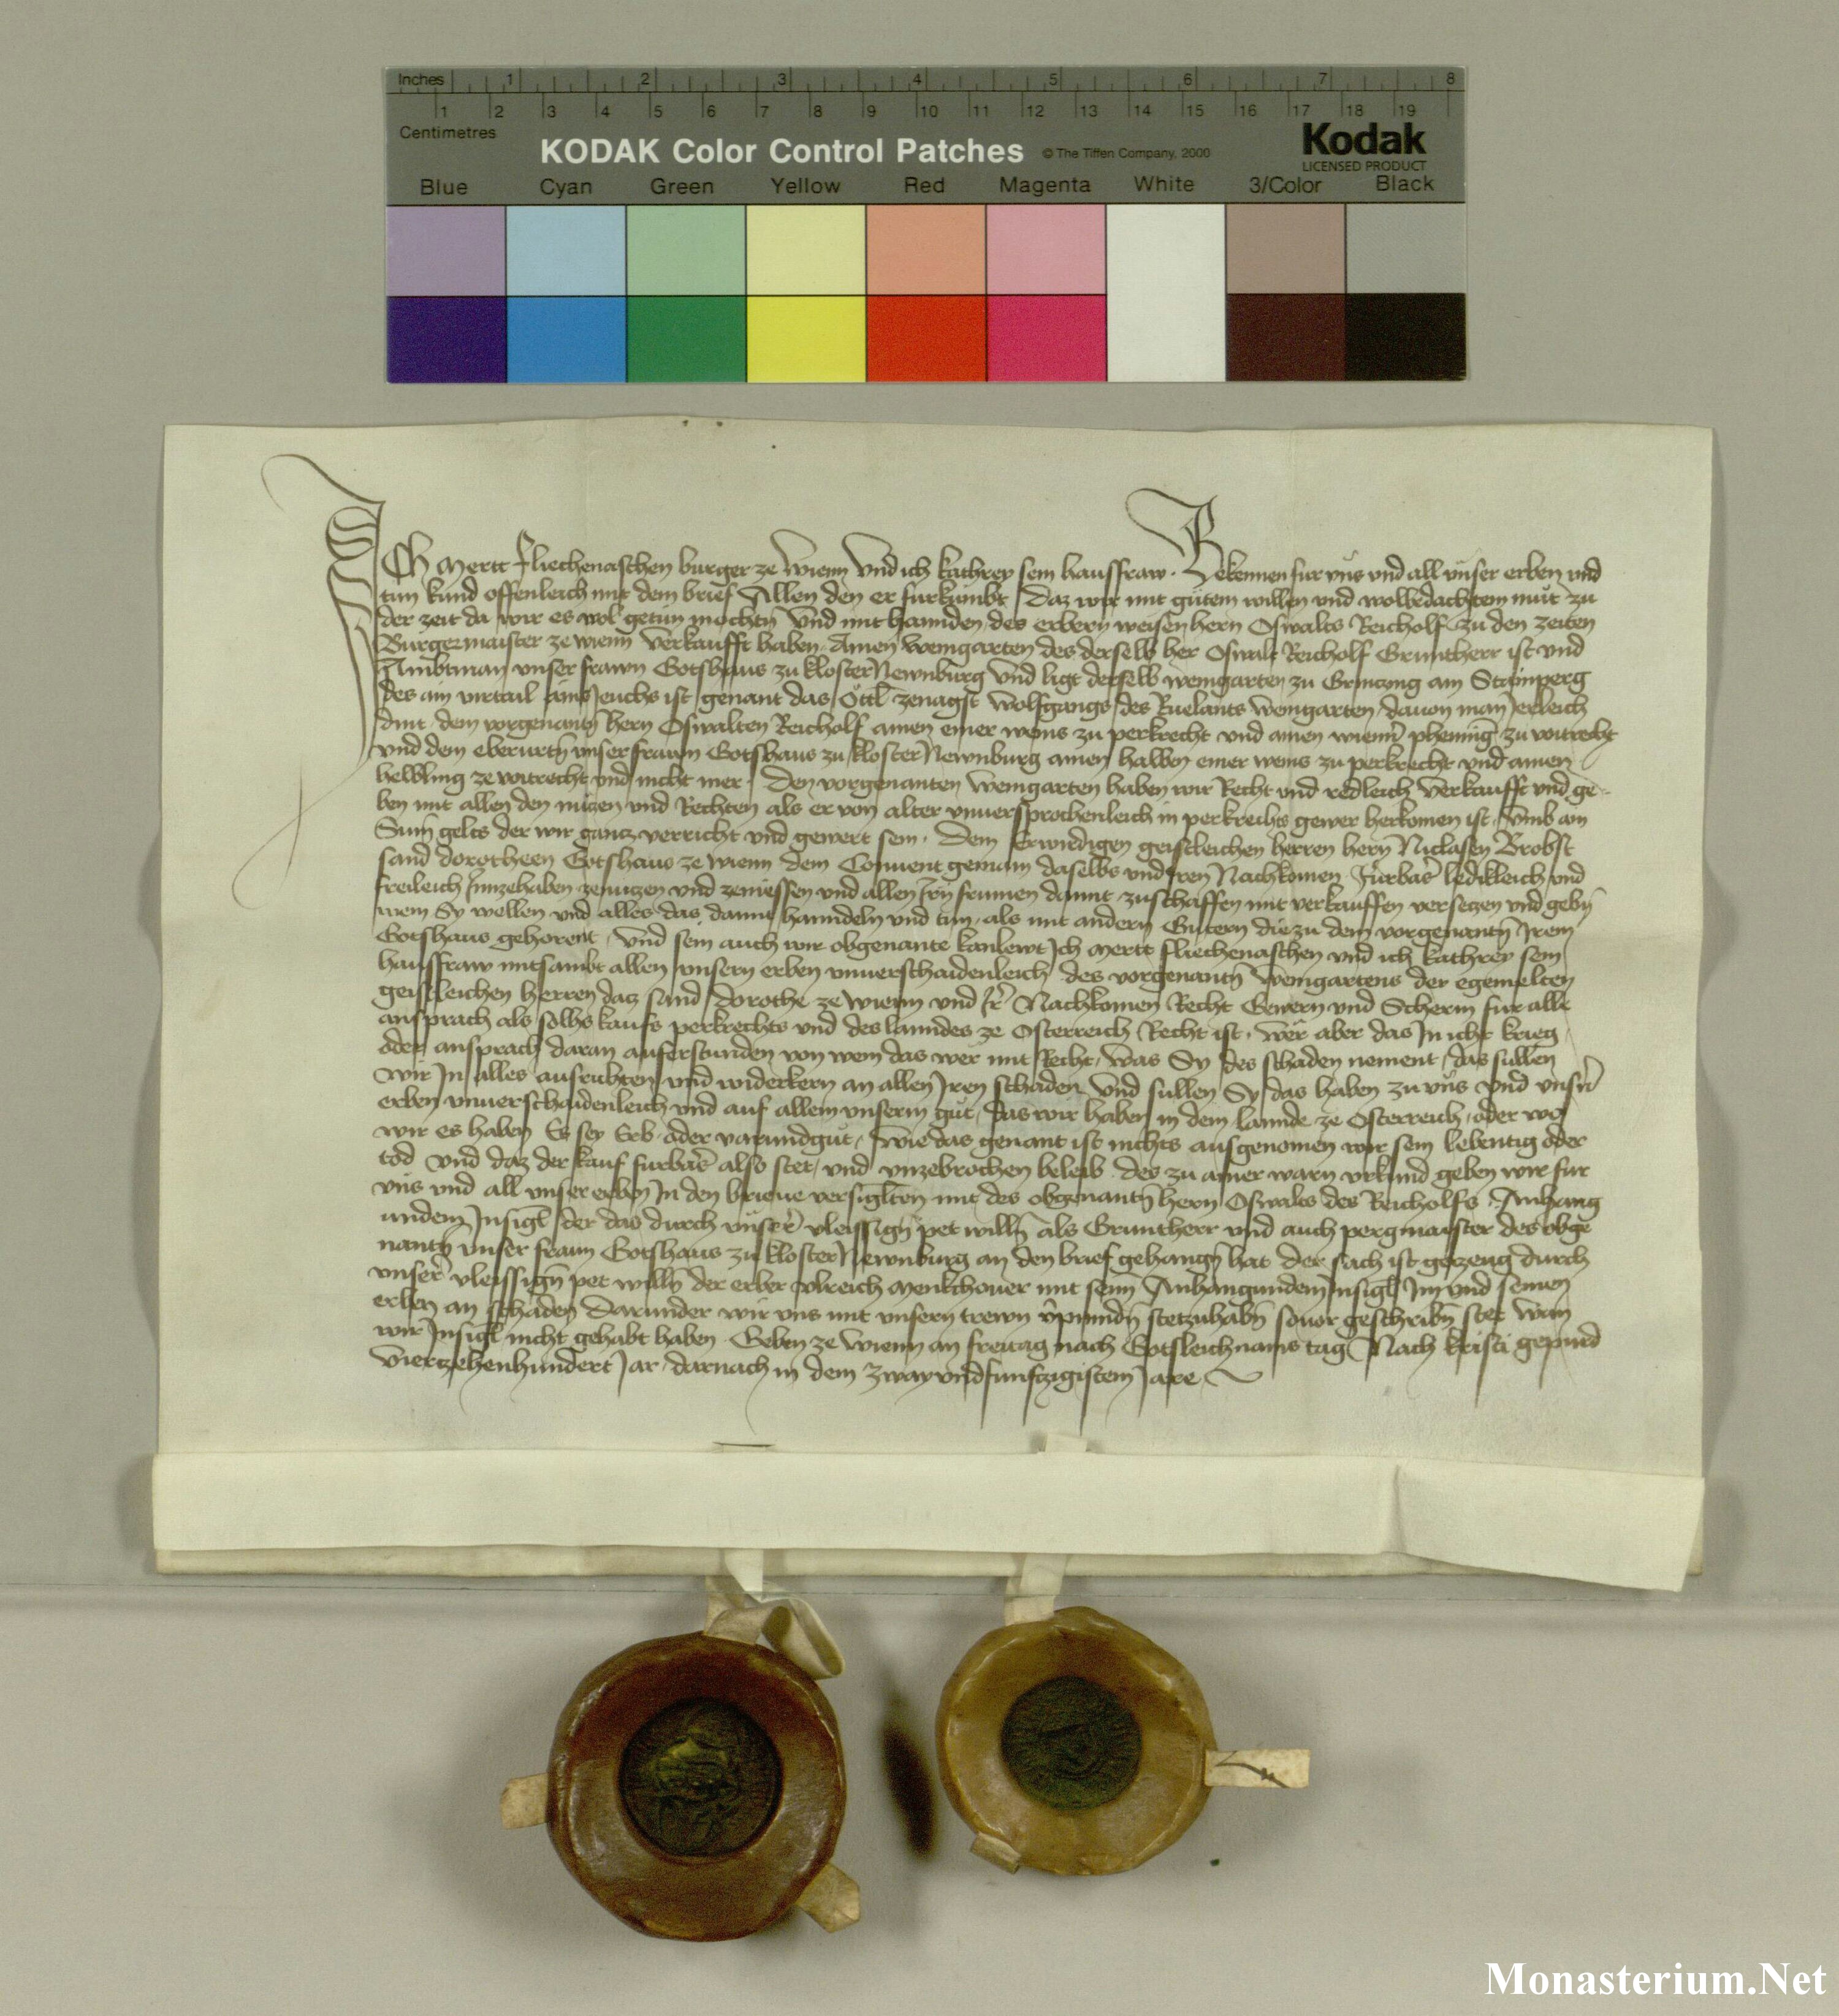 Inches 1 2 3 4 5 6 7 8
1 2 3 4 5 6 7 8 9 10 11 12 13 14 15 16 17 18 19
Centimetres
KODAK Color Control Patches © The Tiffen Company, 2000
Kodak
LICENSED PRODUCT
Blue Cyan Green Yellow Red Magenta White 3/Color Black
Ich Mertt fliechenaschen burger ze Wienn Und ich kathrey sein hausfraw. Bekennen fur uns und all unser erben und
tun kund offenleich mit dem brief Allen den er furkumbt Daz wir mit gutem willen und wolbedachtem mut zu
der zeit da wir es wol getun mochtn Und mit hannden des erbern weisen hern Oswalts Reicholf zu den zeiten
Burgermaister ze wienn Verkaufft haben Ainen weingarten des derselb her Oswalt Reicholf Gruntherr ist und
Ambtman unser frawn Gotshaus zu klosterNewnburg Und ligt derselb weingarten zu Grinczing am Stainperg
des ain virtail ains Jeuchs ist genant das Öttl zenagst Wolfgangs des Ruelants weingarten davon man Jerleich
dint dem vorgenantn hern Oswalten Reicholf ainen emer weins zu perkrecht und ainen wienn phening zu voitrecht
und dem eberurtn unser frawn Gotshaus zu klosterNewnburg ainen halben emer weins zu perkrecht und ainen
helbling ze voitrecht und nicht mer Den vorgenanten weingarten haben wir Recht und redleich Verkaufft und ge-
ben mit allen den nuczen und Rechten als er von alter unversprochenleich in perkrechts gewer herkomen ist Umb ain
Sum gelts der wir gancz verricht und gewert sein. Dem Erwirdigen geistleichen herren hern Niclasen Brobst
sand dorotheen Gotshaus ze wienn dem Convent gemain daselbs und Iren Nachkomen Furbaser ledikleich und
freileich Innzehaben zenuczen und zeniessen und allen Irn frumen damit zuschaffen mit verkauffen verseczen und gebn
wem Sy wellen und alles das damit hanndeln und tun als mit andern Gutern die zu dem vorgenantn Irem
Gotshaus gehorent Und sein auch wir obgenante kanlewt Ich Mertt fliechenaschen und ich kathrey sein
hausfraw mitsambt allen unsern erben unverschaidenleich des vorgenantn weingartens der egemelten
geistleichen herren daz sand dorothe ze wienn und Ir Nachkomen Recht Gewern und Scherm fur alle
ansprach als solhs kaufs perkrechts und des lanndes ze Osterreich Recht ist. Wer aber das In icht krieg
oder ansprach daran auferstunden von wem das wer mit Recht Was Sy des schaden nement das sullen
wir In alles ausrichten und widerkern an allen Iren schaden Und sullen Sy das haben zu uns und unsern
erben unverschaidenleich und auf allem unserm gut das wir haben in dem lannde ze Osterreich oder wo
wir es haben Es sey Erb oder varundgut Wie das genant ist nichts ausgenomen wir sein lebentig oder
tod Und daz der kauf furbaser also stet und unzebrochen beleib des zu ainer warn urkund geben wir fur
uns und all unser erben In den brieve versiglten mit des obgenantn hern Oswalts des Reicholfs Anhang
undem Insigl der das durch unser vleissign pet willn als Gruntherr und auch pergmaister des obge
nantn unser fraun Gotshaus zu klosterNewnburg an den brief gehangn hat Der sach ist geczeug durch
unser vleissign pet willn der erber Ulreich Menkchover mit seim Anhangundem Insigl Im und seinen
erben an schaden Darunder wir uns mit unsern trewn verpunndn stetzuhabn sovor geschribn stet Wan
wir Insigl nicht gehabt haben. Geben ze Wienn an freitag nach Gotsleichnams tag Nach kristi gepurd
Vierczehenhundert Jar darnach in dem Zwayundfunfczigistem Jare
Monasterium.Net